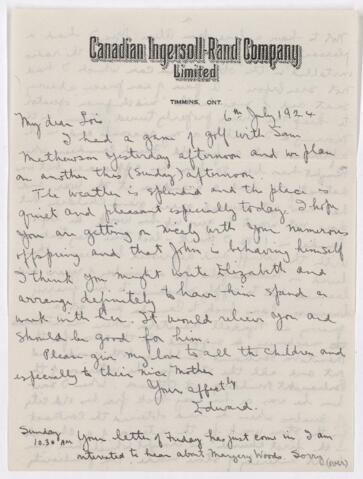 Canadian Ingersoll-Rand Company
Limited
TIMMINS, ONT.
6th July 1924
My dear Lois
I had a game of golf with Sam
Mathewson yesterday afternoon and we plan
on another this (Sunday) afternoon.
The weather is splendid and the place is
quiet and pleasant especially today. I hope
you are getting on nicely with your numerous
offspring and that John is behaving himself
I think you might write Elizabeth and
arrange definitely to have him spend a
week with her. It would relieve you and
should be good for him.
Please give my love to all the children and
especially to their nice Mother
Your affectly
Edward.
Sunday
10.30 AM
Your letter of Friday has just come in. I am
interested to hear about Margery Woods. Sorry
(over)